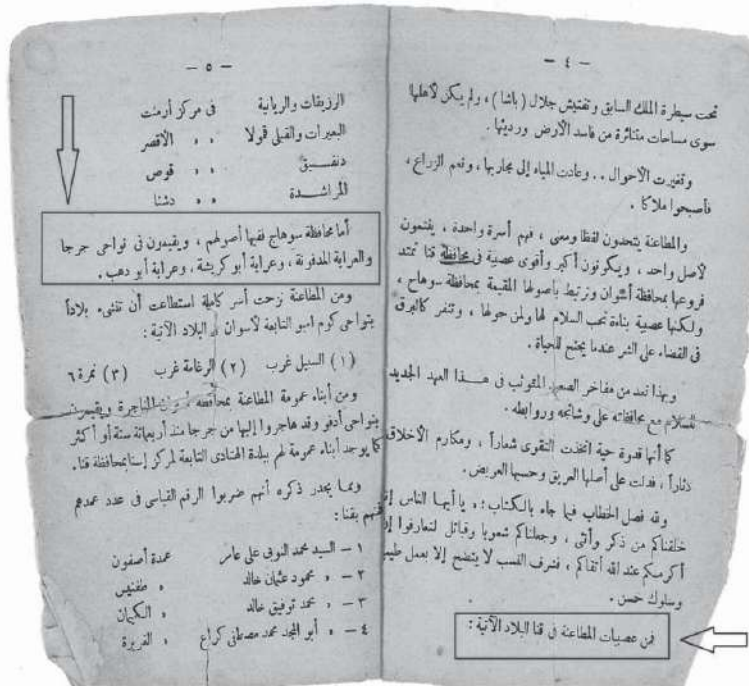 — ٤ —
تحت سيطرة الملك السابق وتفتيش جلال ( باشا ) ، ولم يكن لأهلها
سوى مساحات متناثرة من فاسد الأرض ورديئها .
وتغيرت الأحوال . . وعادت المياه إلى مجاريها ، ونعم الزراع ،
فأصبحوا ملاكا .
والمطاعنة يتحدون لفظا ومعنى ، فهم أسرة واحدة ، ينتمون
لأصل واحد ، ويكونون أكبر وأقوى عصبية فى محافظة قنا تمتد
فروعها بمحافظة أسوان وترتبط بأصولها المقيمة بمحافظة سوهاج ،
ولكنها عصبية بناءة تحب السلام لها ولمن حولها ، وتنفر كالبرق
فى القضاء على الشر عندما يجتمع للحياة .
وبهذا تعد من مفاخر الصعيد المتوثب فى هــذا العهد الجديد
للسلام مع محافظاته على وشائجه وروابطه .
كما أنها قدوة حية اتخذت التقوى شعاراً ، ومكارم الأخلاق
دثاراً ، فدلت على أصلها العريق وحسبها العريض .
ولله فصل الخطاب فيما جاء بالكتاب : « يا أيهـا الناس إنا
خلقناكم من ذكر وأنثى ، وجعلناكم شعوبا وقبائل لتعارفوا إن
أكرمكم عند الله أتقاكم ، فشرف النسب لا يتضح إلا بعمل طيب
وسلوك حسن .
فمن عصبيات المطاعنة فى قنا البلاد الآتية :
— ٥ —
الرزيقات والريانية فى مركز أرمنت
البعيرات والقبلى قمولا » » الأقصر
دنفــيق » » قوص
المراشــدة » » دشنا
أما محافظة سوهاج ففيها أصولهم ، ويقيدون فى نواحى جرجا
والعرابة المدفونة ، وعرابة أبو كريشة ، وعرابة أبو دهب .
ومن المطاعنة نزحت أسر كاملة استطاعت أن تنشىء بلاداً
بنواحى كوم امبو التابعة لأسوان البلاد الآتية :
( ١ ) السيل غرب ( ٢ ) الرغامة غرب ( ٣ ) نمرة ٦
ومن أبناء عمومة المطاعنة بمحافظة ويقيمون
بنواحى أدفو وقد هاجروا إليها من جرجا منذ أربعمائة سنة أو أكثر
كما يوجد أبناء عمومة لهم ببلدة الهنادى التابعة لمركز إسنا بمحافظة قنا .
ومما يجدر ذكره أنهم ضربوا الرقم القياسى فى عدد عمدهم
بقنا :
١ — السيد محمد النوبى على عامر عمدة أصفون
٢ — » محمود عثمان خالد » طفنيس
٣ — » محمد توفيق خالد » الكيمان
٤ — » أبو المجد محمد مصطفى كراع » الغريرة